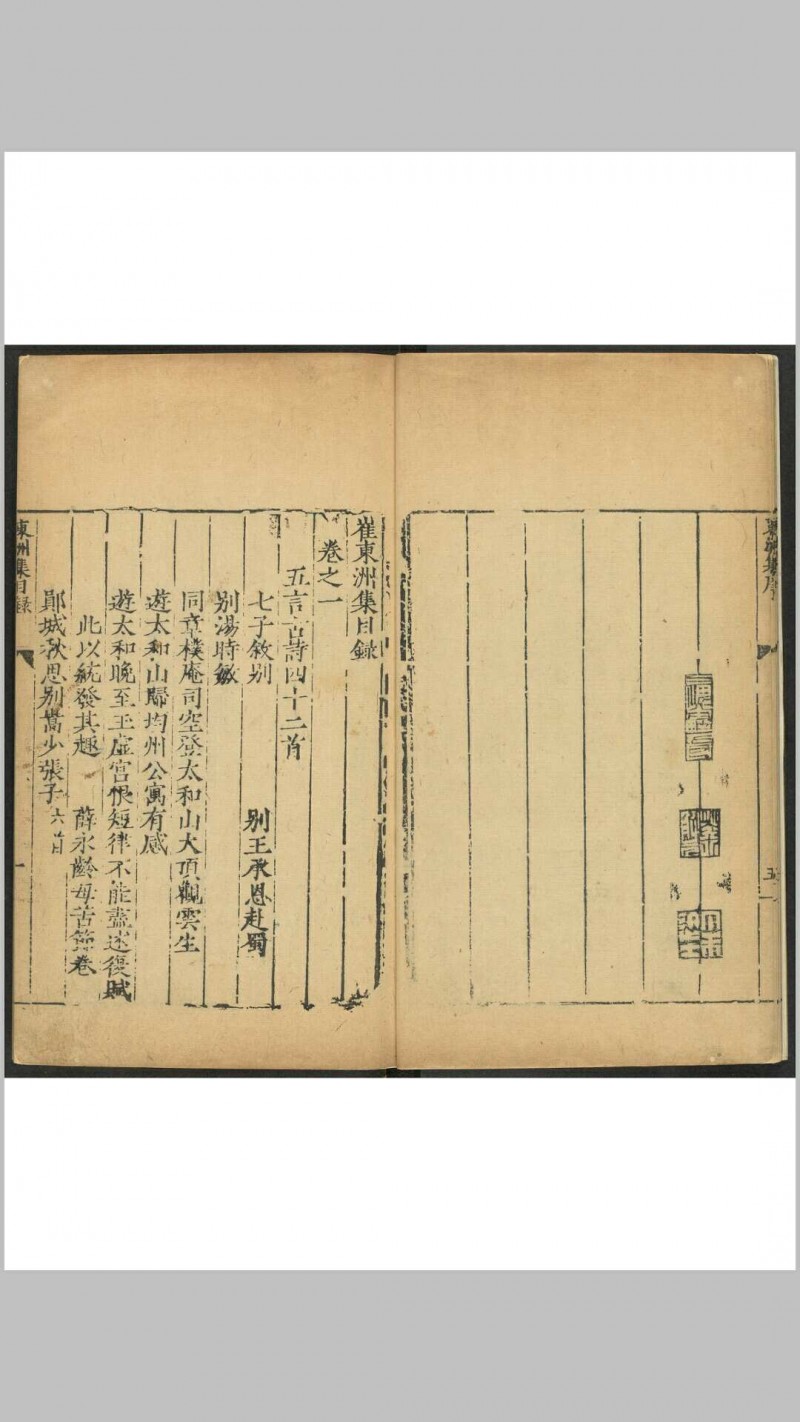 東洲集序
五
崔東洲集目錄
卷之一
五言古詩四十二首
七子敘別 別王承恩赴蜀
別湯時敏
同章樸庵司空登太和山大頂觀雲生
遊太和山歸均州公寓有感
遊太和晚至玉虛宮恨短律不能盡述復賦
此以統發其趣 薛永齡母苦節卷
鄖城秋思別蒿少張子六首
東洲集目錄
一